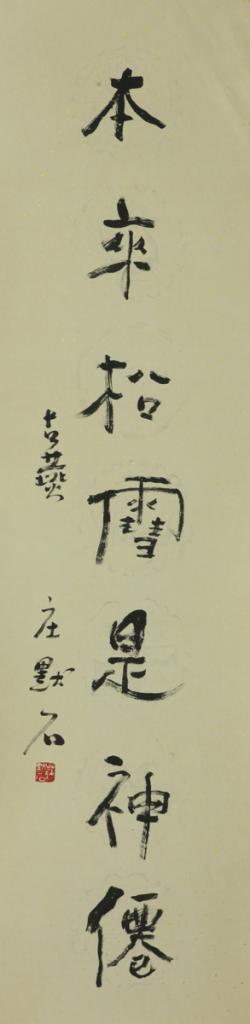 本來松雪是神僊
吉燕
庄默石